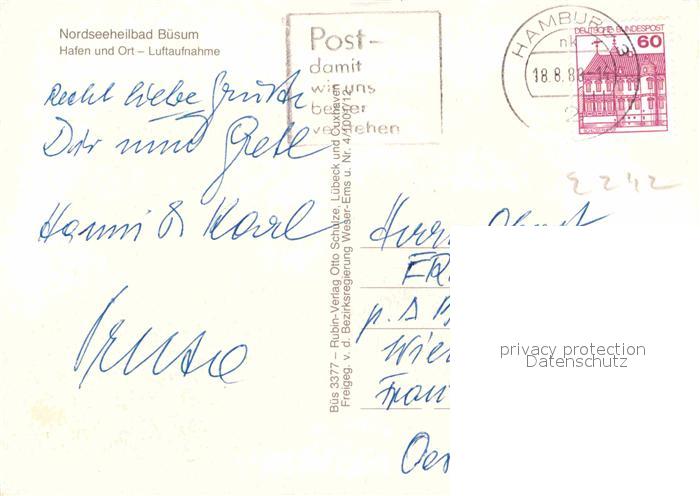 Nordseeheilbad Büsum
Hafen und Ort – Luftaufnahme
Post-
damit
wir uns
besser
verstehen
HAMBURG
18.8.88
DEUTSCHE BUNDESPOST
60
Recht liebe Grüße
Dir und Gretl
Hanni & Karl
Büs 3377 – Rubin-Verlag Otto Schulze, Lübeck und Cuxhaven
Freigeg. v. d. Bezirksregierung Weser-Ems u. Nr. 4/1009/12
Herrn
p. A
Wie
Fran
Oes
privacy protection
Datenschutz